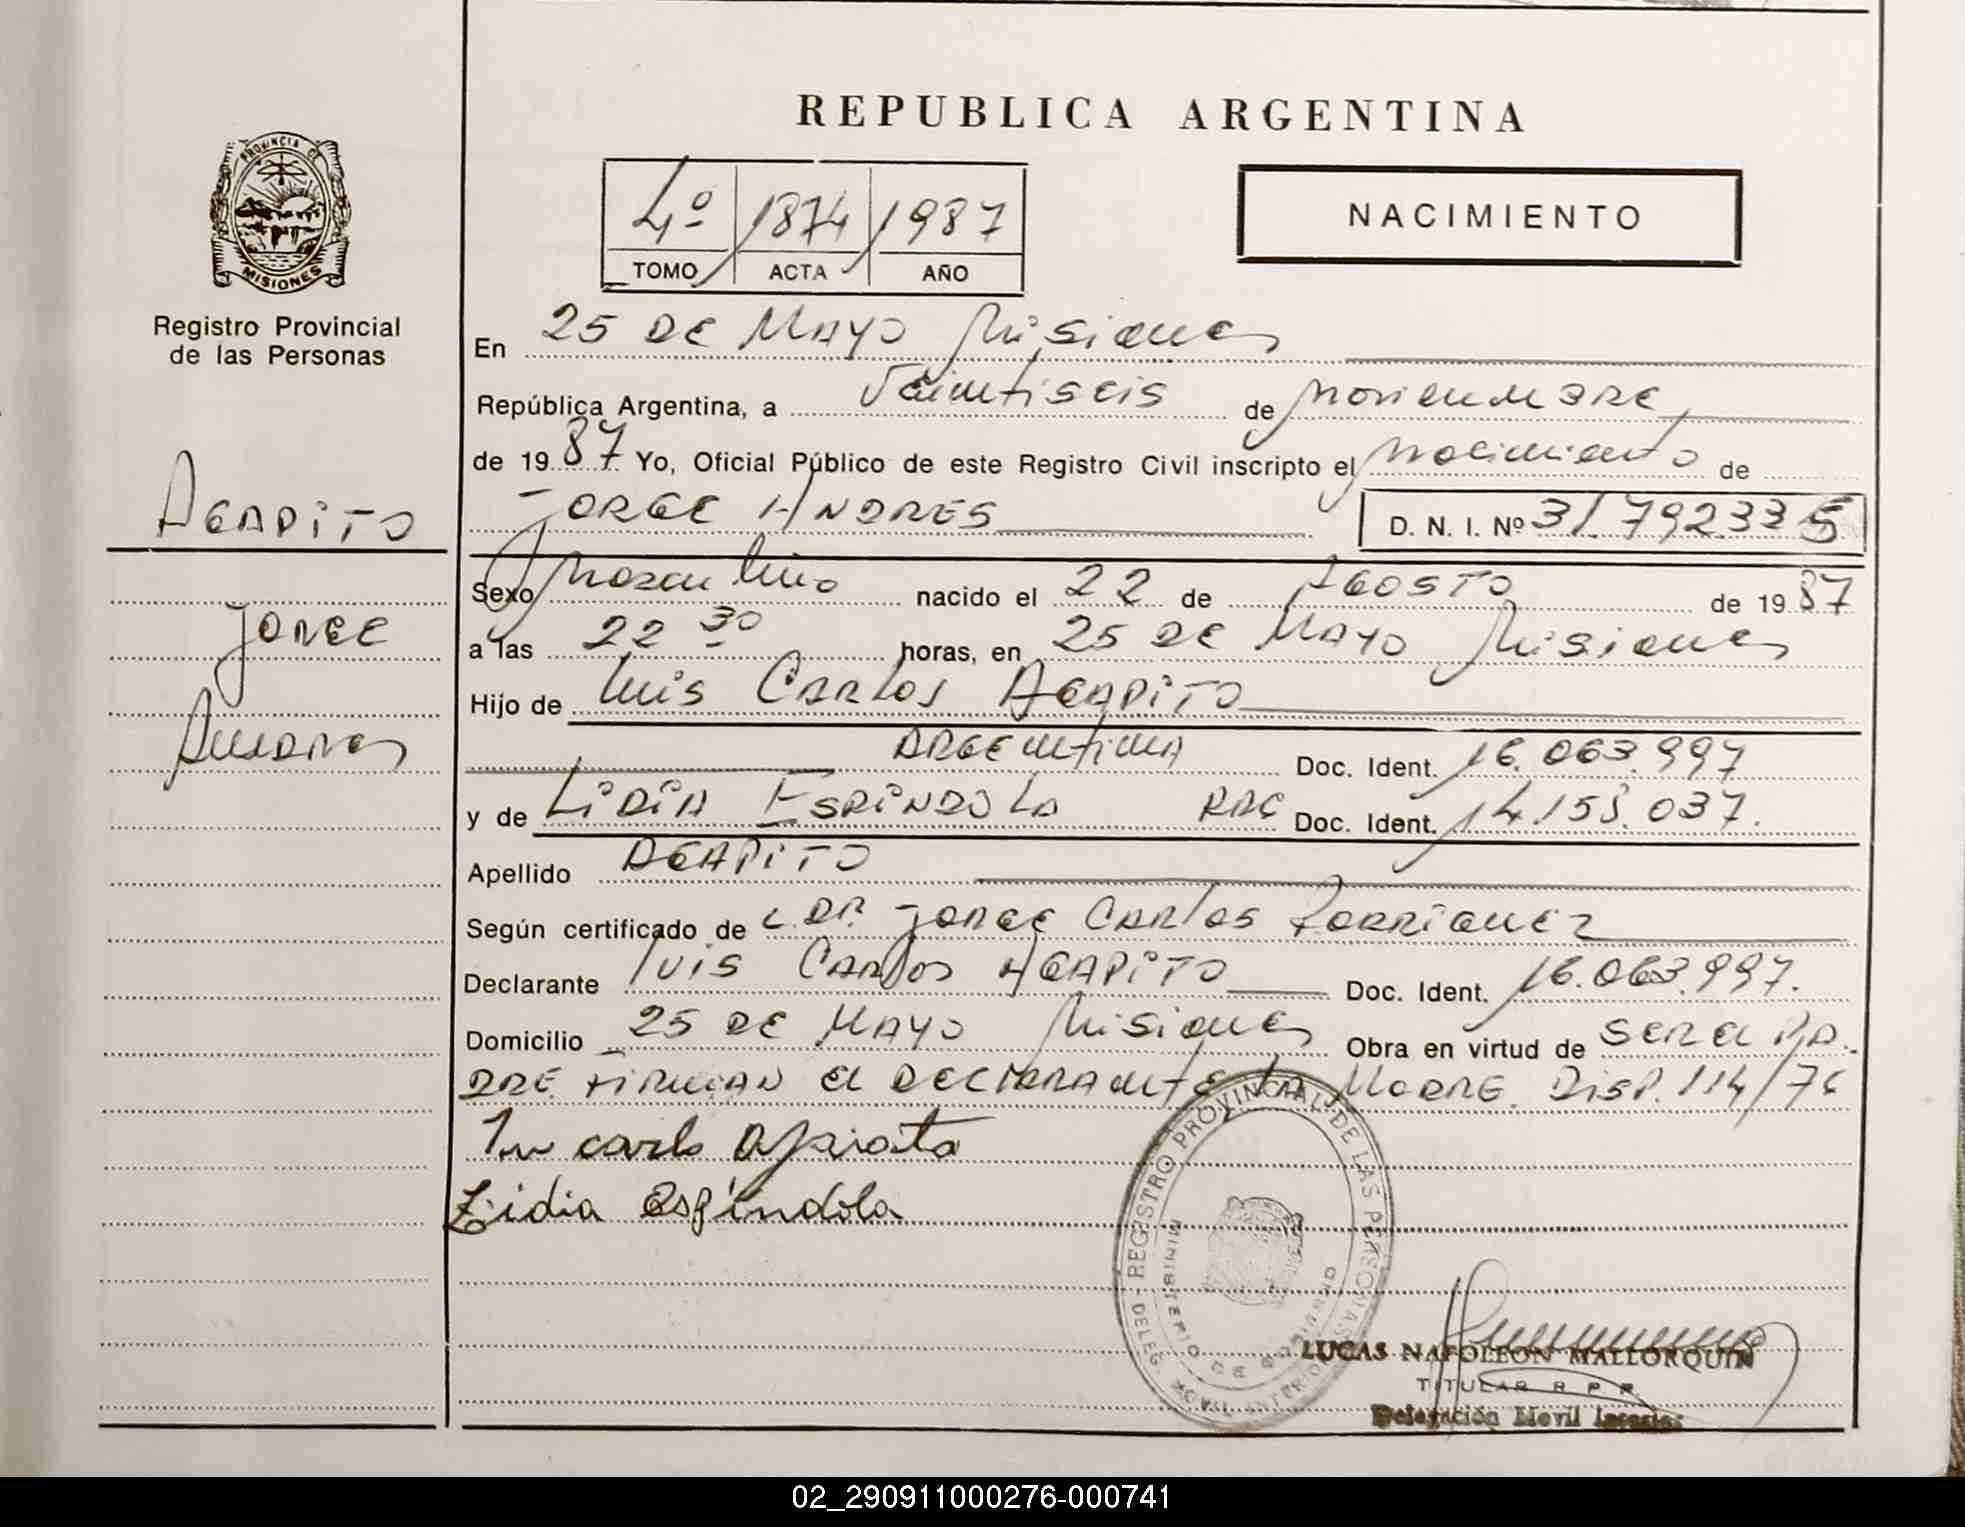 REPUBLICA ARGENTINA
PROVINCIA DE
MISIONES
Registro Provincial
de las Personas
4º 1874 1987
TOMO ACTA AÑO
NACIMIENTO
AGAPITO
JORGE
ANDRES
En 25 DE MAYO Misiones
República Argentina, a Veintiseis de Noviembre
de 1987 Yo, Oficial Público de este Registro Civil inscripto el Nacimiento de
JORGE ANDRES D. N. I. Nº 31792335
Sexo Masculino nacido el 22 de AGOSTO de 1987
a las 22 30 horas, en 25 DE MAYO Misiones
Hijo de Luis CARLOS AGAPITO
ARGENTINA Doc. Ident. 16.063.997
y de LIDIA ESPINDOLA Doc. Ident. 14.155.037.
Apellido AGAPITO
Según certificado de DR. JORGE CARLOS RODRIGUEZ
Declarante LUIS CARLOS AGAPITO Doc. Ident. 16.063.997.
Domicilio 25 DE MAYO Misiones Obra en virtud de SER EL PA
DRE FIRMAN EL DECLARANTE LA MADRE. DISP. 114/76
carlo
Lidia espindola
REGISTRO PROVINCIAL DE LAS PERSONAS
MINISTERIO DE GOBIERNO
LUCAS NAPOLEON MALLORQUIN
TITULAR R. P. P.
Delegación Movil
02_290911000276-000741